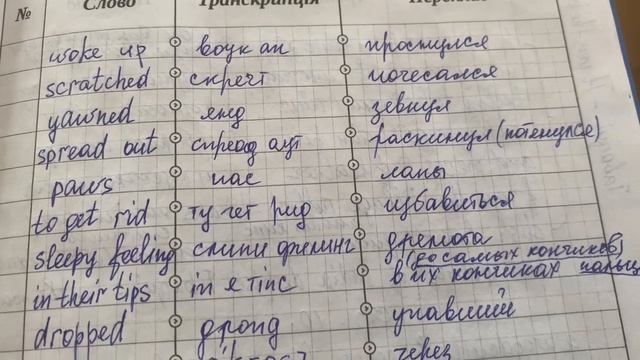 № Слово Транскрипція
woke up воук ап проснулся
scratched скречт почесался
yawned янд зевнул
spread out спреад аут раскинул (потенулсе)
paws пас лапы
to get rid ту гет рид избавиться
sleepy feeling слипи филинг дремота
(до самых кончиков)
in their tips in я тinc в их кончиках
dropped дропд упавший
через